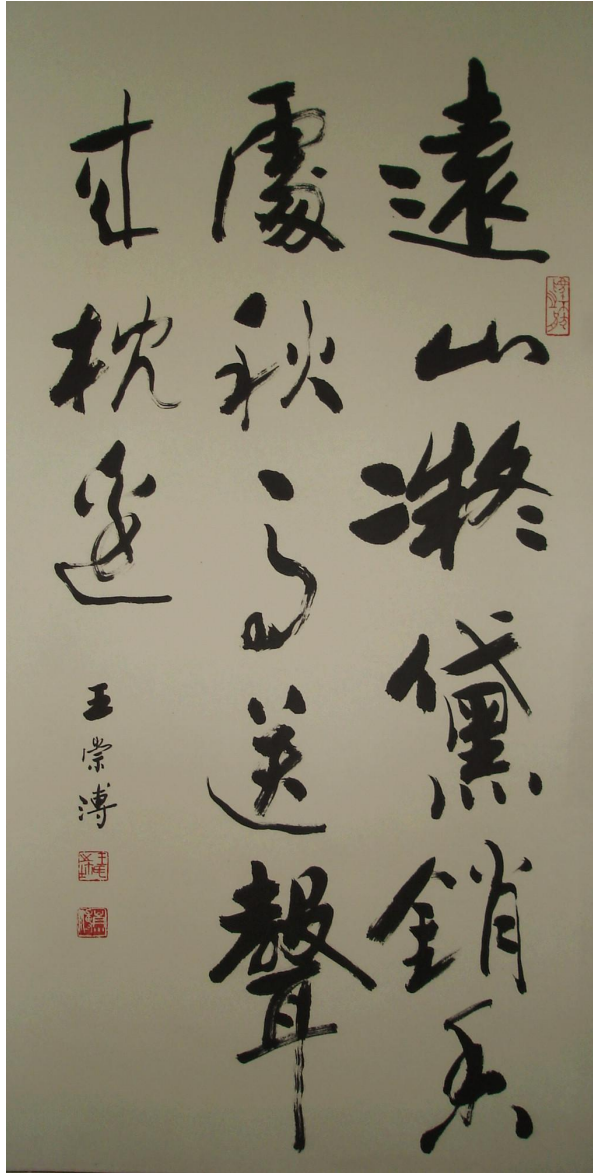 遠山凝黛銷
處秋雨送聲
來枕邊
王崇溥